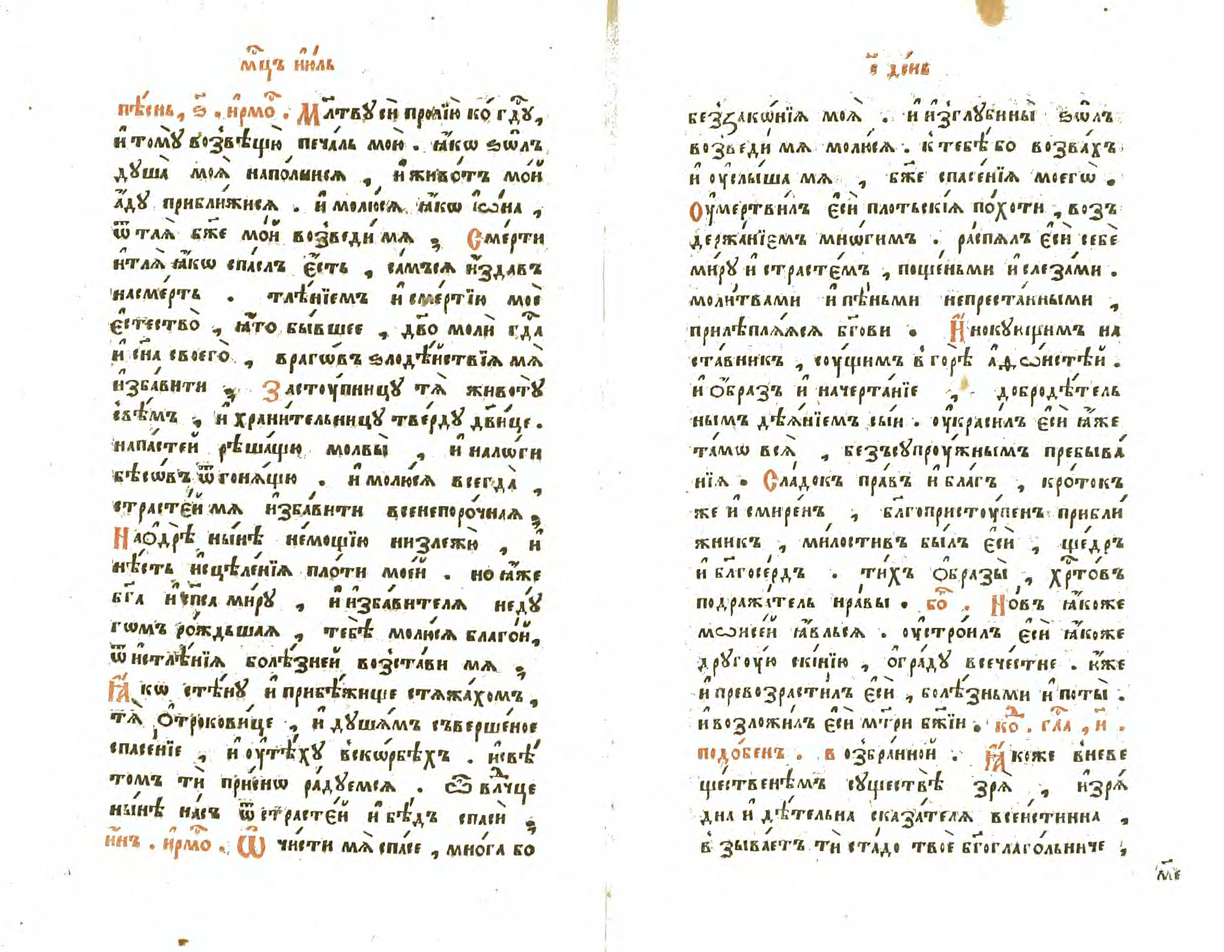 мц҃ъ ию́ль
пѣ́снь, ѕ҃ . ірмо́с . Мл҃тву сѝ пролію̀ ко́ гд҃у,
и҆ тому̀ возвѣщу̀ печа́ль мою̀ . ꙗ҆́кѡ ѕѡ́лъ
душа̀ моѧ̀ напо́лнисѧ , и҆ живо́тъ мо́й
а҆́ду прибли́жисѧ . и҆ молю́сѧ ꙗ҆́кѡ і҆ѡ́на ,
ѿ тлѧ̀ бж҃е мо́й возведи́ мѧ , Сме́рти
и тлѧ̀ ꙗ҆́кѡ спа́слъ є҆́сть , са́мъ сѧ и҆зда́въ
на сме́рть . тлѣ́нїемъ и҆ сме́ртїю моѐ
є҆стество̀ , ꙗ҆́то бы́вшее , дв҃о молѝ гд҃а
и҆ сн҃а своего̀ , враго́въ ѕлодѣ́йствїѧ мѧ̀
и҆зба́вити , Засту́пницу тѧ̀ животу̀
свѣ́мъ , и҆ храни́тельницу тве́рду дв҃ице .
напа́стей рѣша́щу молвы̀ , и҆ нало́ги
бѣсо́въ ѿгонѧ́щу . и҆ молю́сѧ всегда̀ ,
страсте́й мѧ и҆зба́вити всенепоро́чнаѧ ,
На ѻ҆дрѣ̀ ны́нѣ не́мощїю низлежу̀ , и҆
нѣ́сть и҆сцѣле́нїѧ пло́ти мое́й . но ꙗ҆́же
бг҃а и҆ сп҃са ми́ру , и҆ и҆зба́вителѧ неду́
гѡмъ ро́ждьшаѧ , тебѣ̀ молю́сѧ благо́й,
ѿ и҆стлѣ́нїѧ болѣ́зней возста́ви мѧ ,
Ꙗ҆́кѡ стѣ́ну и҆ прибѣ́жище стѧжа́хомъ ,
тѧ̀ ѻ҆трокови́це , и҆ душа́мъ съверше́ное
спасе́нїе , и҆ оу҆тѣ́ху в ско́рбѣхъ . и҆ свѣ́
томъ тѝ при́снѡ ра́дуемсѧ . Ѽ влⷣчце
ны́нѣ на́съ ѿ страсте́й и҆ бѣ́дъ спасѝ ,
и҆́нъ . ірмо́с . Ѿ чи́сти мѧ̀ сп҃се , мно́га бо
і҃ де́нь
беззакѡ́нїѧ моѧ̀ . и҆ и҆з глубины̀ ѕѡ́лъ
возведи́ мѧ молю́сѧ . к тебѣ́ бо возва́хъ
и҆ оу҆слы́ша мѧ , бж҃е спасе́нїѧ моегѡ̀ .
Оу҆мертви́лъ є҆сѝ пло́тьскїѧ по́хоти , воз
держа́нїемъ мно́гимъ . распѧ́лъ є҆сѝ себѐ
ми́ру и҆ страсте́мъ , поще́ньми и҆ слеза́ми .
моли́твами и҆ пѣ́ньми непреста́нными ,
прилѣплѧ́ѧсѧ бг҃ови . И҆́нокующимъ на
ста́вникъ , со́ущимъ в горѣ̀ а҆фо́нстѣй .
и҆ ѻ҆́бразъ и҆ начерта́нїе , добродѣ́тель
нымъ дѣѧ́нїемъ сы́й . оу҆краси́лъ є҆сѝ ꙗ҆́же
та́мѡ всѧ̀ , безъсупро́ужнымъ пребыва́
нїѧ . Сла́докъ пра́въ и҆ бла́гъ , кро́токъ
же и҆ смире́нъ , бл҃гопристо́упенъ прибли́
жникъ , ми́лостивъ бы́лъ є҆сѝ , ще́дръ
и҆ бл҃госе́рдъ . ти́хъ ѻ҆бразы̀ , хрⷭто́въ
подража́тель нра́вы . бо́г . Но́въ ꙗ҆́коже
мѡѷсе́й ꙗ҆́вльсѧ . оу҆стро́илъ є҆сѝ ꙗ҆́коже
другоу́ю ски́нїю , ѻ҆гра́ду всече́стне . ю҆́же
и҆ превозрасти́лъ є҆сѝ , болѣ́зньми и҆ по́ты .
и҆ возложи́лъ є҆сѝ мт҃ри бж҃їи . ко́нд . гла́с , и҃ .
подо́бенъ . в озбра́нной . Ꙗ҆́коже в неве
ще́ственѣмъ существѣ̀ зрѧ̀ , и҆зрѧ́
дна и҆ дѣ́тельна сказа́телѧ всеи́стинна ,
в зыва́етъ ти ста́до твоѐ бг҃оглаго́льниче ,
м҃е